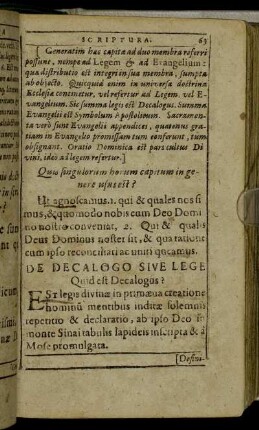 SCRIPTURA. 63
Generatim hæc capita ad duo membra referri
possunt, nempe ad Legem & ad Evangelium:
qua distributio est integri in sua membra, sumpta
ab objecto. Quicquid enim in universa doctrina
Ecclesiæ continetur, vel refertur ad Legem, vel E-
vangelium. Sic summa legis est Decalogus: Summa
Evangelii est Symbolum Apostolicum. Sacramen-
ta verò sunt Evangelii appendices, quatenus gra-
tiam in Evangelio promissam tum conferunt, tum
obsignant. Oratio Dominica est pars cultus Di-
vini, ideo ad legem refertur.]
Quis singulorum horum capitum in ge-
nere usus est?
Ut agnoscamus. 1. qui & quales nos si-
mus, & quomodo nobis cum Deo Domi-
no nostro conveniat, 2. Qui & qualis
Deus Dominus noster sit, & qua ratione
cum ipso reconciliari ac uniri queamus.
DE DECALOGO SIVE LEGE
Quid est Decalogus?
EST legis divinæ in primæva creatione
hominũ mentibus inditæ solemnis
repetitio & declaratio, ab ipso Deo in
monte Sinai tabulis lapideis inscripta & à
Mose promulgata.
[Defini-